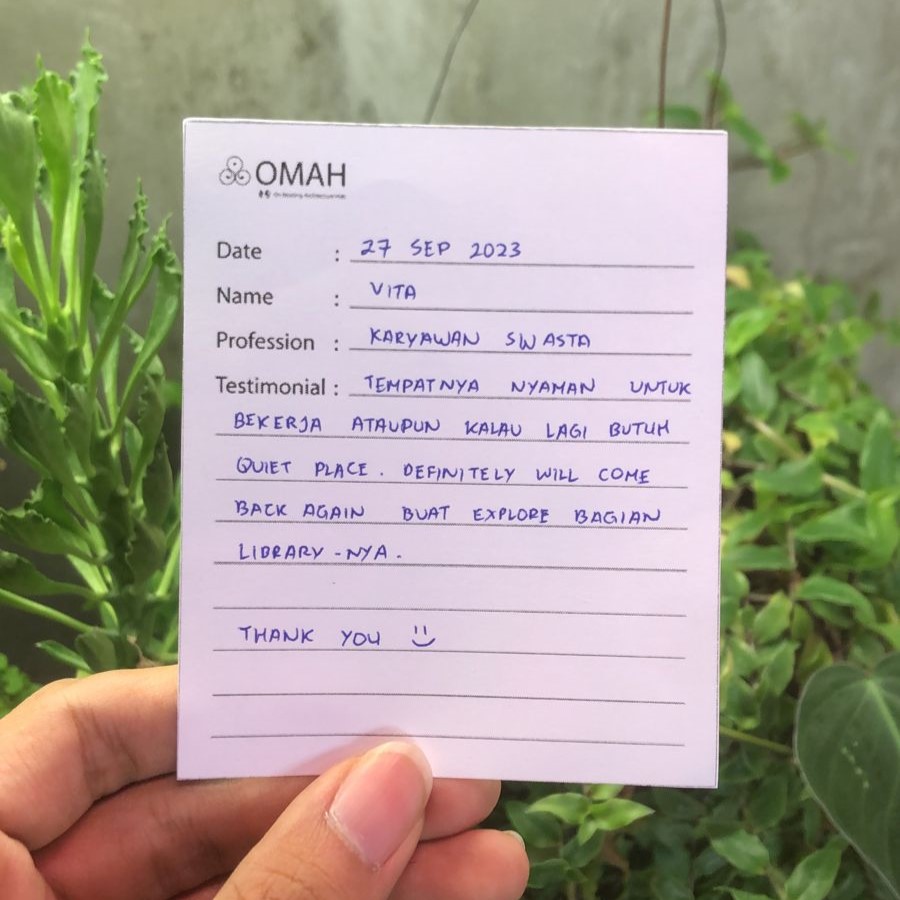 OMAH
On Meaning Architecture Hub
Date : 27 SEP 2023
Name : VITA
Profession : KARYAWAN SWASTA
Testimonial : TEMPATNYA NYAMAN UNTUK
BEKERJA ATAUPUN KALAU LAGI BUTUH
QUIET PLACE. DEFINITELY WILL COME
BACK AGAIN BUAT EXPLORE BAGIAN
LIBRARY -NYA.
THANK YOU